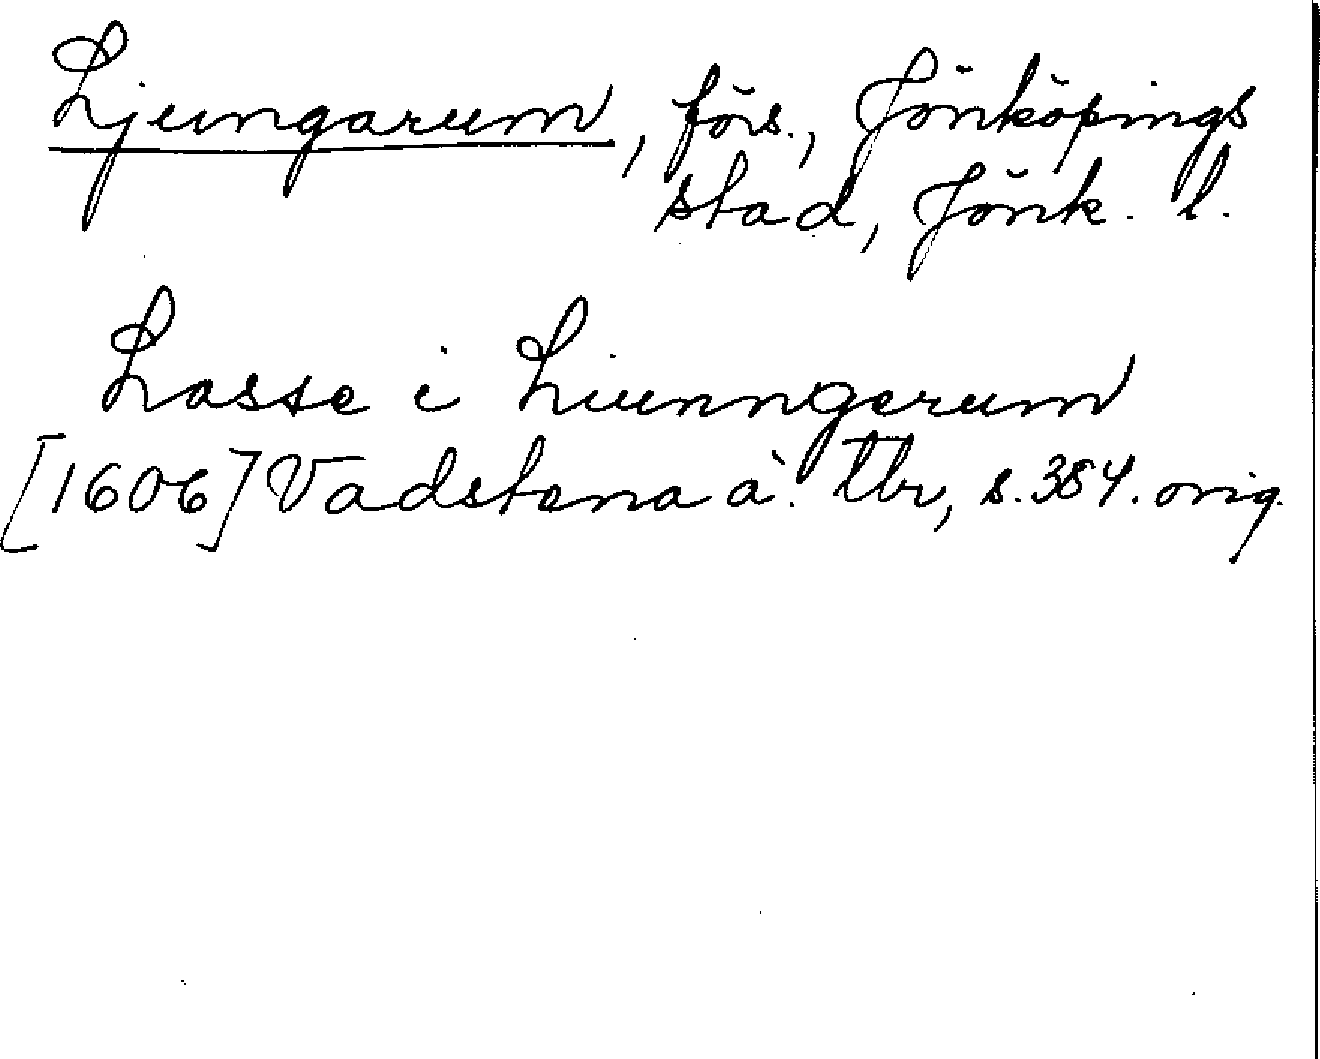 Ljungarum, förs., Jönköpings
stad, Jönk. l.
Lasse i Liunngerum
[1606] Vadstena ä. tbr, s. 384. orig.